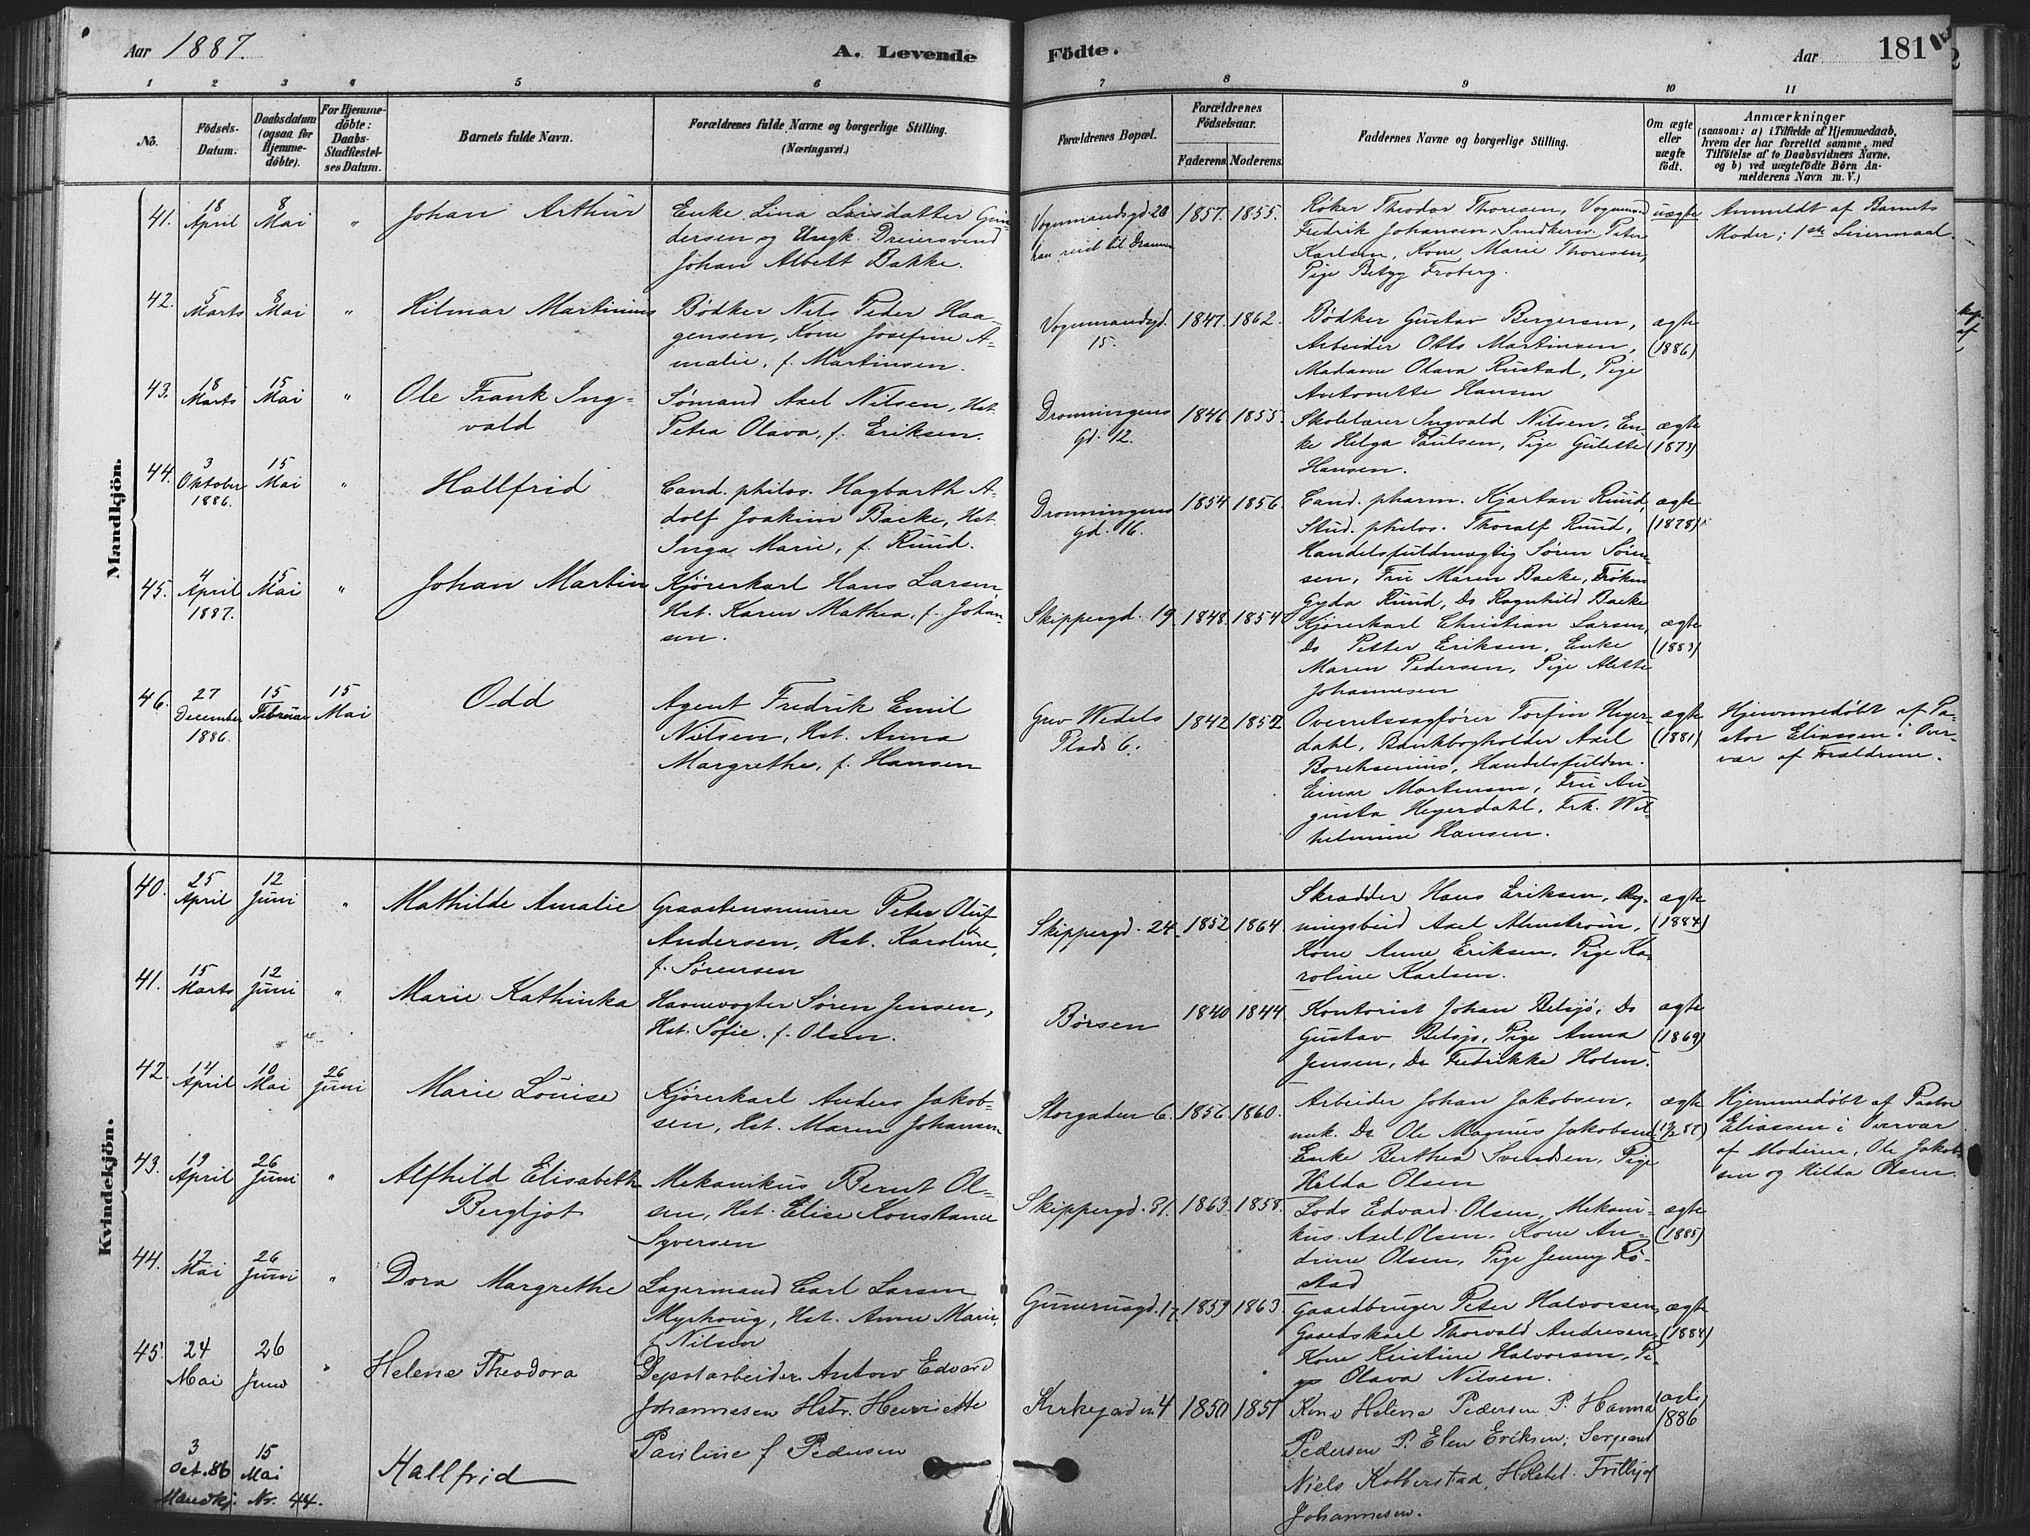 Aar 1887.
A. Levende Födte.
Aar
181
1 2 3 4 5 6 7 8 9 10 11
No.
Födsels-Datum.
Daabsdatum (ogsaa for Hjemme-döbte).
For Hjemme-döbte: Daabs-Stadfæstel-ses Datum.
Barnets fulde Navn.
Forældrenes fulde Navne og borgerlige Stilling. (Næringsvei.)
Forældrenes Bopæl.
Forældrenes Födselsaar.
Faderens. Moderens.
Faddernes Navne og borgerlige Stilling.
Om ægte eller uægte födt.
Anmærkninger
(saasom: a) i Tilfælde af Hjemmedaab, hvem der har forrettet samme, med Tilföielse af to Daabsvidners Navne, og b) ved uægtefödte Börn An-melderens Navn m. V.)
Mandkjön.
41. 18 April 8 Mai " Johan Arthur
Enke Lina Larsdatter Gun-
dersen og Ungk. Dreiersvend
Johan Albert Bakke.
Vognmandsgd 20
han reist til Drammen
1857. 1855.
Røker Theodor Thoresen, Vognmand
Fredrik Johansen, Snedkersv. Peter
Karlsen, Kone Marie Thoresen,
Pige Betzy Froberg.
uægte
Anmeldt af Barnets
Moder; 1ste Leiermaal.
42. 5 Marts 8 Mai " Hilmar Martinius
Bødker Nils Peder Haa-
gensen, Kone Josefine A-
malie, f. Martinsen.
Vognmandsgd. 15.
1847. 1862.
Bødker Gustav Bergersen,
Arbeider Otto Martinsen,
Madame Olava Rustad, Pige
Antonette Hansen
ægte (1886)
43. 18 Marts 15 Mai " Ole Frank Ing-
vald
Sømand Axel Nilsen, Hst.
Petra Olava, f. Eriksen.
Dronningens
Gd. 12.
1846 1855.
Skolelærer Ingvald Nilsen, En-
ke Helga Paulsen, Pige Gulette
Hansen.
ægte (1873)
44. 3 Oktober 1886. 15 Mai " Hallfrid
Cand. philos. Hagbarth A-
dolf Joakim Backe, Hst.
Inga Marie, f. Ruud.
Dronningens
gd. 16.
1854 1856.
Cand. pharm. Kjartan Ruud,
Stud. philos. Thoralf Ruud,
Handelsfuldmægtig Søren Søren-
sen, Fru Maren Backe, Frøken
Gyda Ruud, Do Ragnhild Backe
ægte (1878)
45. 4 April 1887. 15 Mai " Johan Martin
Kjørerkarl Hans Larsen,
Hst. Karen Mathea, f. Johan-
sen.
Skippergd. 19
1848. 1854
Kjørerkarl Christian Larsen,
Do Petter Eriksen, Enke
Maren Pedersen, Pige Alette
Johannesen
ægte (1883)
46. 27 December 1886. 15 Februar 15 Mai Odd
Agent Fredrik Emil
Nilsen, Hst. Anna
Margrethe, f. Hansen
Grev Wedels
Plads 6.
1842 1857
Overretssagfører Torfin Heyer-
dahl, Bankbogholder Axel
Borchsenius, Handelsfuldm.
Einar Mortensen, Fru Au-
gusta Heyerdahl, Frk. Wil-
helmine Hansen.
ægte (1881)
Hjemmedøbt af Pa-
stor Eliassen i Over-
vær af Forældrene.
Kvindekjön.
40. 25 April 12 Juni " Mathilde Amalie
Graastensmurer Peter Oluf
Andersen, Hst. Karoline,
f. Sørensen
Skippergd. 24
1852 1864
Skrædder Hans Eriksen, Byg-
ningsbeid Axel Almstrøm,
Kone Anne Eriksen, Pige Ka-
roline Karlsen.
ægte (1884)
41. 15 Marts 12 Juni " Marie Kathinka
Havnevogter Søren Jensen,
Hst. Sofie, f. Olsen.
Børsen
1840 1844
Kontorist Johan Betsjø, Do
Gustav Betsjø, Pige Anna
Jensen, Do Fredrikke Holm.
ægte (1869)
42. 14 April 10 Mai 26 Juni Marie Louise
Kjørerkarl Anders Jakob-
sen, Hst. Maren Johansen
Storgaden 6.
1856 1860.
Arbeider Johan Jakobsen,
Do Ole Magnus Jakobsen
Enke Berthea Svendsen, Pige
Hilda Olsen
ægte
Hjemmedøbt af Pastor
Eliassen i Overvær
af Moderen, Ole Jakob-
sen og Hilda Olsen.
43. 19 April 26 Juni " Alfhild Elisabeth
Bergljot
Mekanikus Bernt Ol-
sen, Hst. Elise Konstance
Syversen
Skippergd. 31.
1863. 1858.
Lods Edvard Olsen, Mekani-
kus Axel Olsen, Kone An-
drine Olsen, Pige Jenny Rø-
stad
ægte (1885)
44. 12 Mai 26 Juni " Dora Margrethe
Lagermand Carl Larsen
Myrhoug, Hst. Anne Marie,
f Nilsen
Gunerusgd. 17.
1859 1863.
Gaardbruger Peter Halvorsen,
Gaardskarl Thorvald Andresen,
Kone Kristine Halvorsen, Pi-
ge Olava Nilsen.
ægte (1884)
45 24 Mai 26 Juni " Helene Theodora
Depotarbeider Anton Edvard
Johannesen Hstr. Henriette
Pauline f Pedersen
Kirkegaden 4
1850 1851
Kone Helene Pedersen P. Hanna
Pedersen P. Elen Eriksen, Sergeant
Niels Kolberstad,
Johannesen.
ægte 1886
3 Oct. 86 15 Mai Hallfrid
Mandkj. Nr. 44.